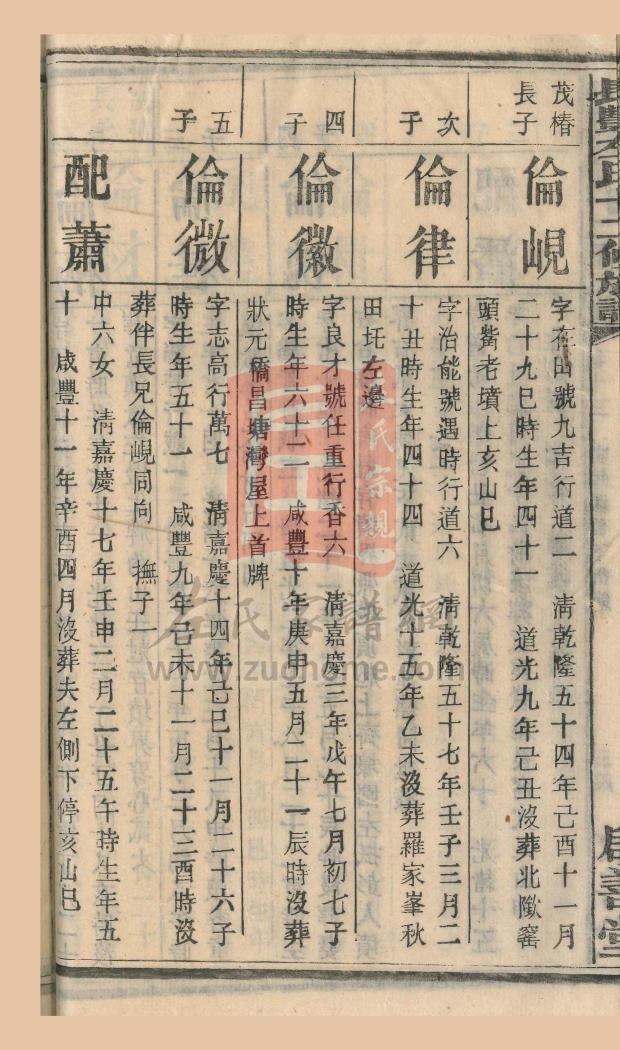 長豐左氏十二修族譜
啟善堂
茂椿
長子
倫峴
字在田號九吉行道二　清乾隆五十四年己酉十一月
二十九巳時生年四十一　道光九年己丑沒葬北隞窰
頭觜老墳上亥山巳
次
子
倫律
字治能號遇時行道六　清乾隆五十七年壬子三月二
十丑時生年四十四　道光十五年乙未沒葬羅家峯秋
田坵左邊
四
子
倫徽
字良才號任重行香六　清嘉慶三年戊午七月初七子
時生年六十二　咸豐十年庚申五月二十一辰時沒葬
狀元橋昌塘灣屋上首牌
五
子
倫微
字志高行萬七　清嘉慶十四年己巳十一月二十六子
時生年五十一　咸豐九年己未十一月二十三酉時沒
葬伴長兄倫峴同向　撫子一
配蕭
中六女　清嘉慶十七年壬申二月二十五午時生年五
十　咸豐十一年辛酉四月沒葬夫左側下停亥山巳
左氏家譜網
www.zuohome.com
氏宗親